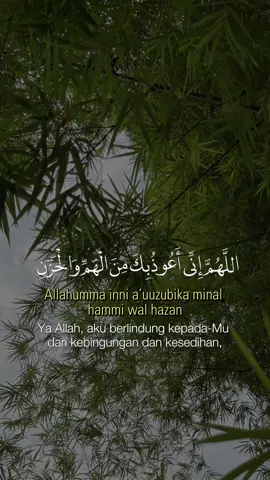 اللَّهُمَّ إِنِّي أَعُوذُ بِكَ مِنَ الْهَمِّ وَالْحَزَنِ
Allahumma inni a'uuzubika minal
hammi wal hazan
Ya Allah, aku berlindung kepada-Mu
dari kebingungan dan kesedihan,